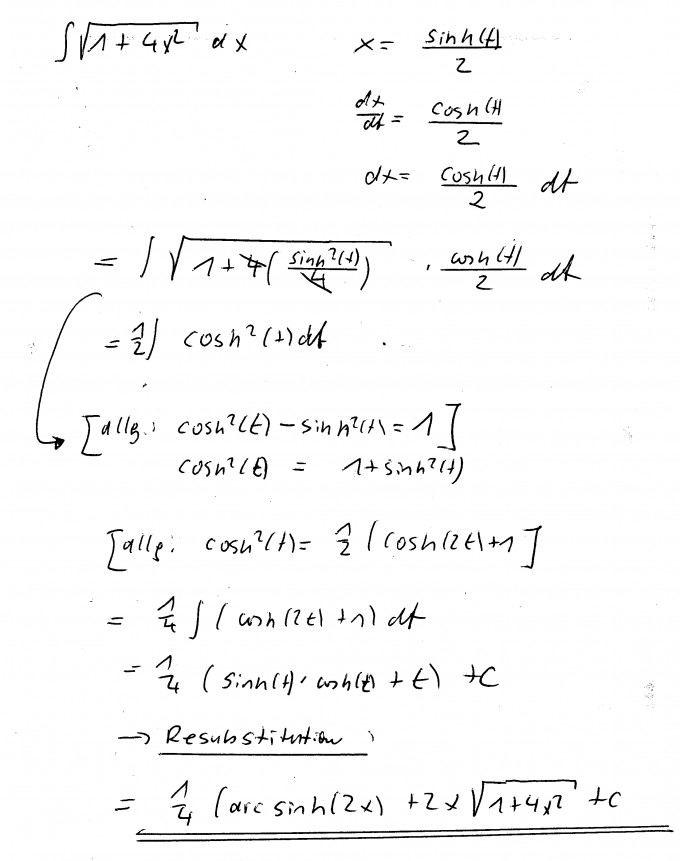 ∫√(1 + 4x²) dx    x = sinh(t)/2
dx/dt = cosh(t)/2
dx = cosh(t)/2 dt
= ∫ √(1 + 4(sinh²(t)/4)) · cosh(t)/2 dt
= 1/2 ∫ cosh²(t) dt
[allg.: cosh²(t) – sinh²(t) = 1]
cosh²(t) = 1 + sinh²(t)
[allg: cosh²(t) = 1/2 (cosh(2t) + 1]
= 1/4 ∫ (cosh(2t) + 1) dt
= 1/4 (sinh(t) · cosh(t) + t) + C
→ Resubstitution:
= 1/4 (arc sinh(2x) + 2x √(1+4x²) + C